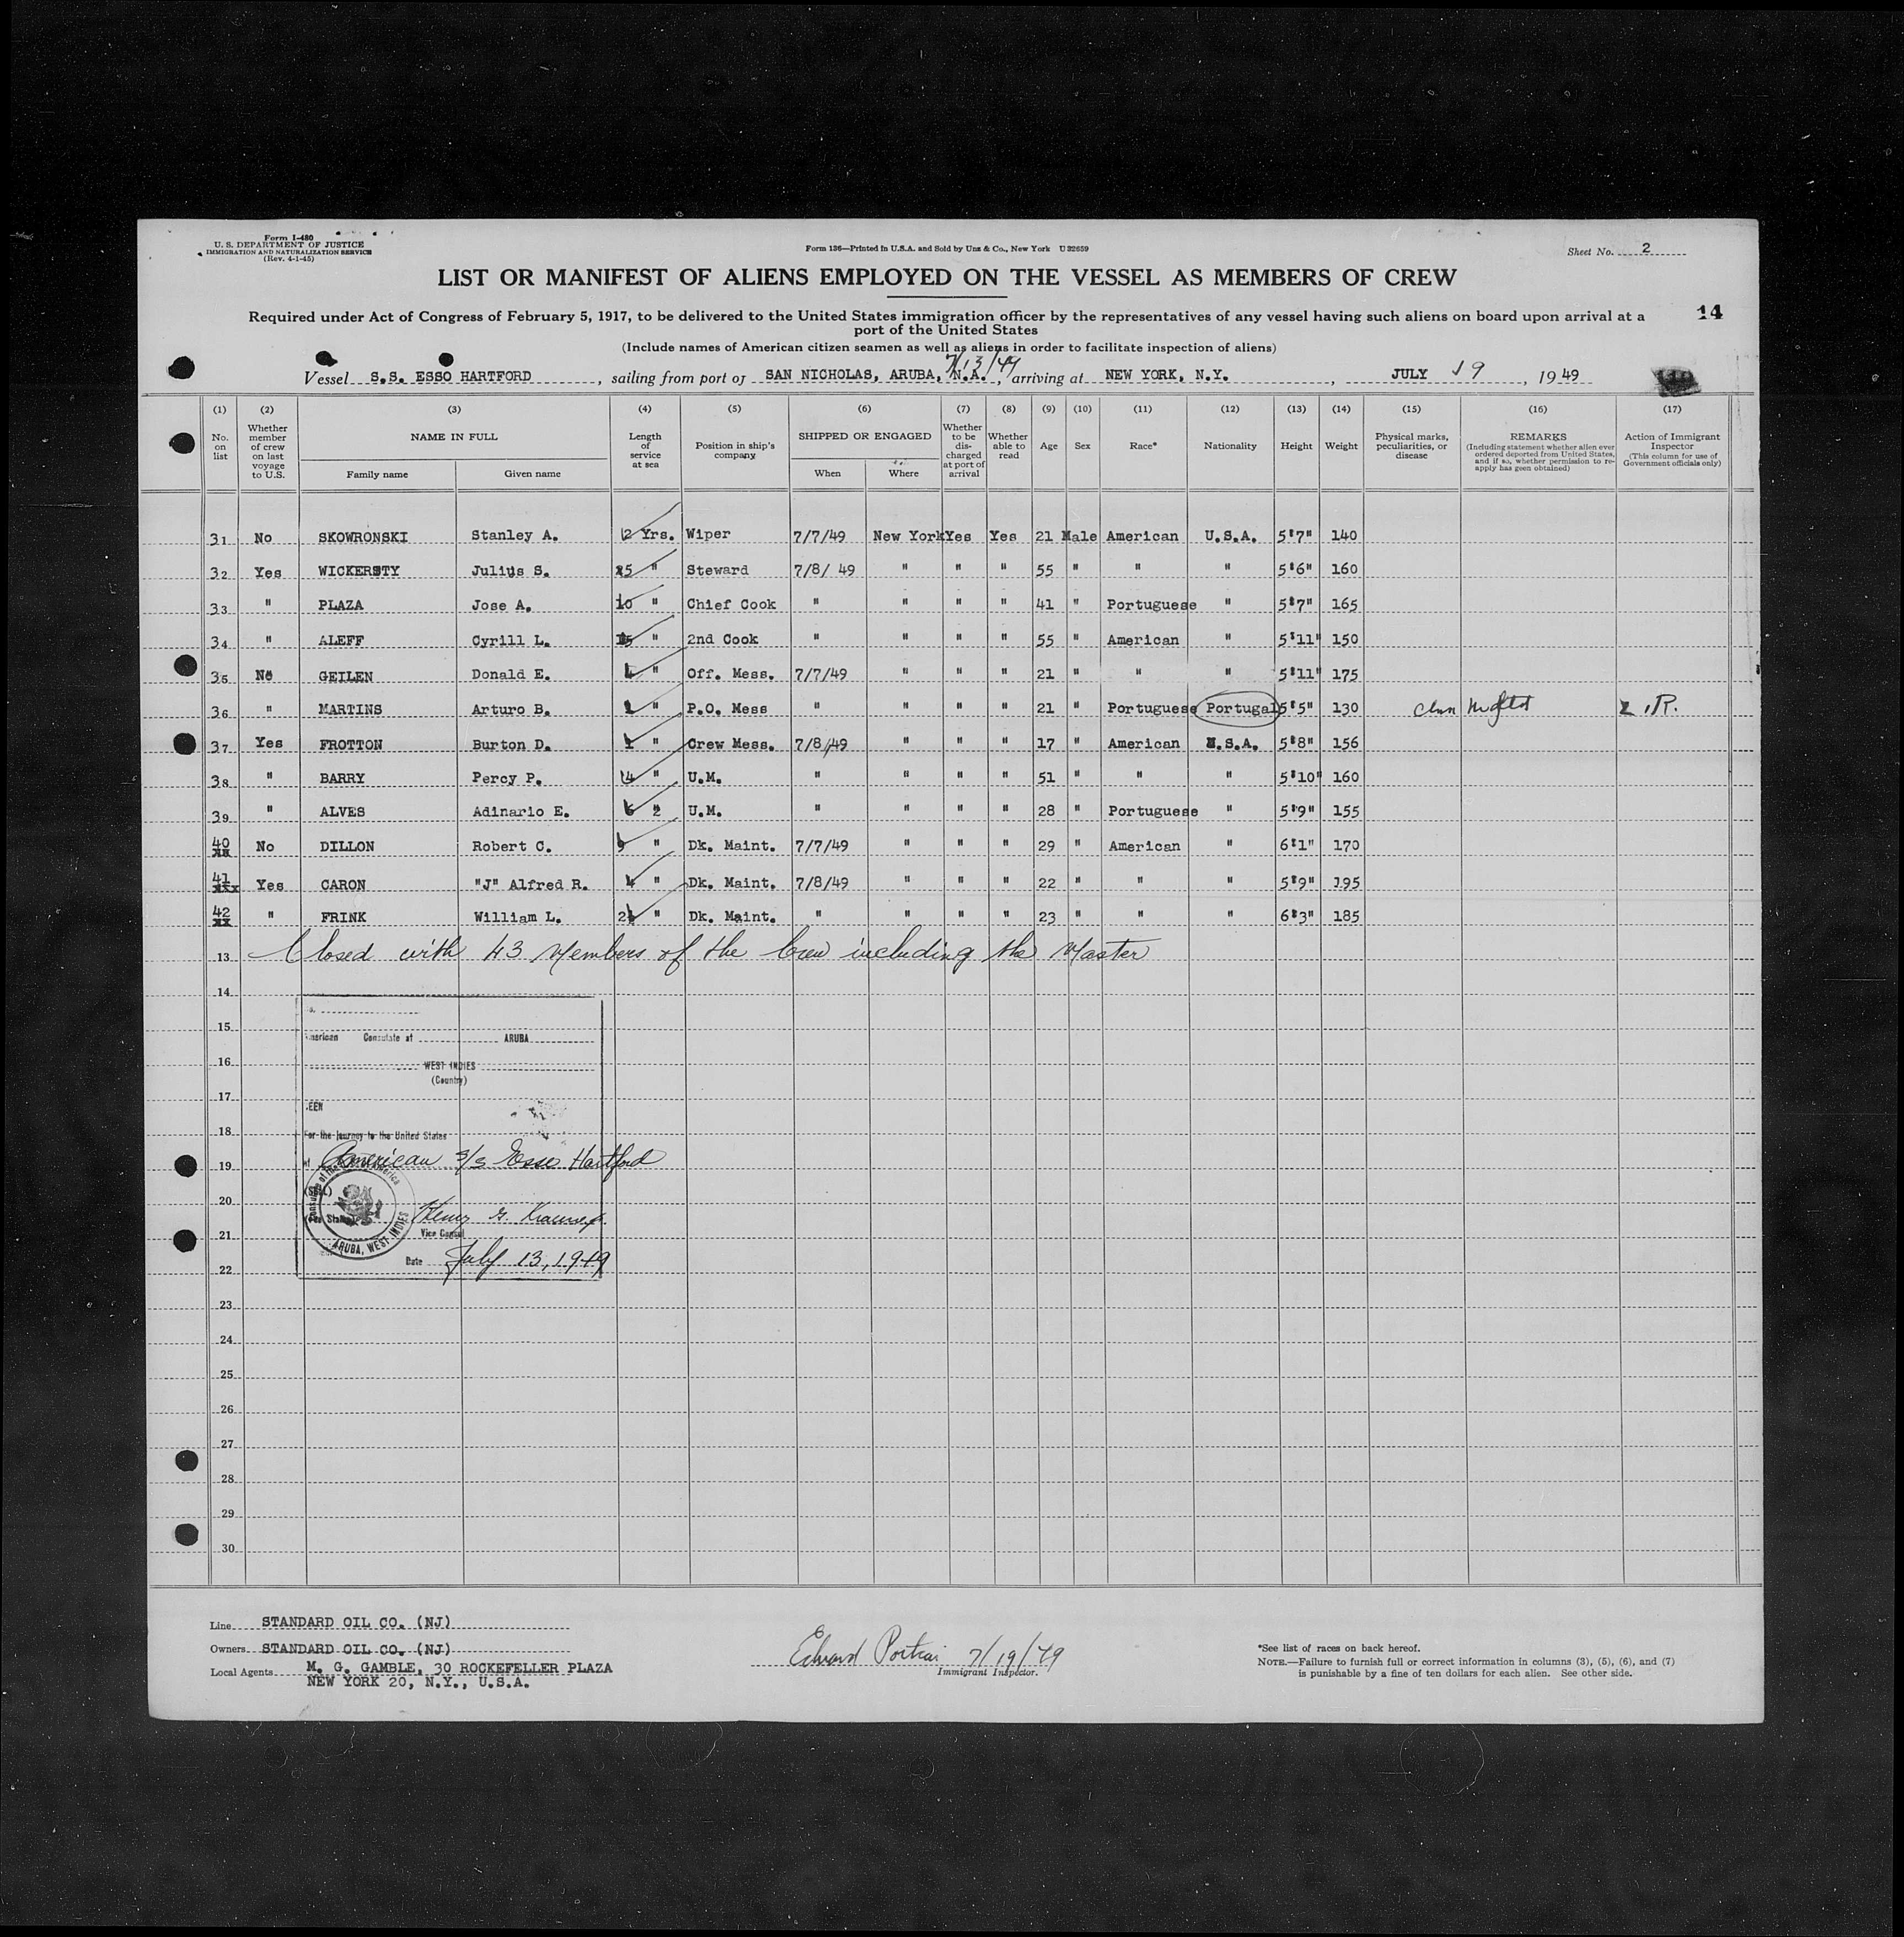 Form I-480
U. S. DEPARTMENT OF JUSTICE
IMMIGRATION AND NATURALIZATION SERVICE
(Rev. 4-1-45)
Form 136—Printed in U.S.A. and Sold by Unz & Co., New York U 32659
Sheet No. 2
LIST OR MANIFEST OF ALIENS EMPLOYED ON THE VESSEL AS MEMBERS OF CREW
Required under Act of Congress of February 5, 1917, to be delivered to the United States immigration officer by the representatives of any vessel having such aliens on board upon arrival at a
port of the United States
14
(Include names of American citizen seamen as well as aliens in order to facilitate inspection of aliens)
7/13/49
Vessel S.S. ESSO HARTFORD, sailing from port of SAN NICHOLAS, ARUBA, N.A., arriving at NEW YORK, N.Y., JULY 19, 1949
(1) (2) (3) (4) (5) (6) (7) (8) (9) (10) (11) (12) (13) (14) (15) (16) (17)
No. on list
Whether member of crew on last voyage to U.S.
NAME IN FULL
Family name
Given name
Length of service at sea
Position in ship's company
SHIPPED OR ENGAGED
When
Where
Whether to be discharged at port of arrival
Whether able to read
Age
Sex
Race*
Nationality
Height
Weight
Physical marks, peculiarities, or disease
REMARKS
(Including statement whether alien ever ordered deported from United States, and if so, whether permission to reapply has been obtained)
Action of Immigrant Inspector
(This column for use of Government officials only)
31 No SKOWRONSKI Stanley A. 2 Yrs. Wiper 7/7/49 New York Yes Yes 21 Male American U.S.A. 5'7" 140
32 Yes WICKERSTY Julius S. 25 " Steward 7/8/ 49 " " " 55 " " " 5'6" 160
33 " PLAZA Jose A. 10 " Chief Cook " " " " 41 " Portuguese " 5'7" 165
34 " ALEFF Cyrill L. 15 " 2nd Cook " " " " 55 " American " 5'11" 150
35 No GEILEN Donald E. 4 " Off. Mess. 7/7/49 " " " 21 " " " 5'11" 175
36 " MARTINS Arturo B. 1 " P.O. Mess " " " " 21 " Portuguese Portugal 5'5" 130
37 Yes FROTTON Burton D. 1 " Crew Mess. 7/8/49 " " " 17 " American U.S.A. 5'8" 156
38 " BARRY Percy P. 4 " U.M. " " " " 51 " " " 5'10" 160
39 " ALVES Adinario E. 6 2 U.M. " " " " 28 " Portuguese " 5'9" 155
40 No DILLON Robert C. " Dk. Maint. 7/7/49 " " " 29 " American " 6'1" 170
41 Yes CARON "J" Alfred R. 4 " Dk. Maint. 7/8/49 " " " 22 " " " 5'9" 195
42 " FRINK William L. " Dk. Maint. " " " " 23 " " " 6'3" 185
13 Closed with 43 Members of the Crew including the Master
14
15
American Consulate at ARUBA
16
WEST INDIES
(Country)
17
SEEN
18
For the journey to the United States
19
American S/S Esso Hartford
(Seal)
20
Henry G.
21
Vice Consul
ARUBA, WEST INDIES
Date July 13, 1949
22
23
24
25
26
27
28
29
30
Line STANDARD OIL CO. (NJ)
Owners STANDARD OIL CO. (NJ)
Local Agents M. G. GAMBLE, 30 ROCKEFELLER PLAZA
NEW YORK 20, N.Y., U.S.A.
Edward 7/19/49
Immigrant Inspector.
*See list of races on back hereof.
NOTE.—Failure to furnish full or correct information in columns (3), (5), (6), and (7)
is punishable by a fine of ten dollars for each alien. See other side.